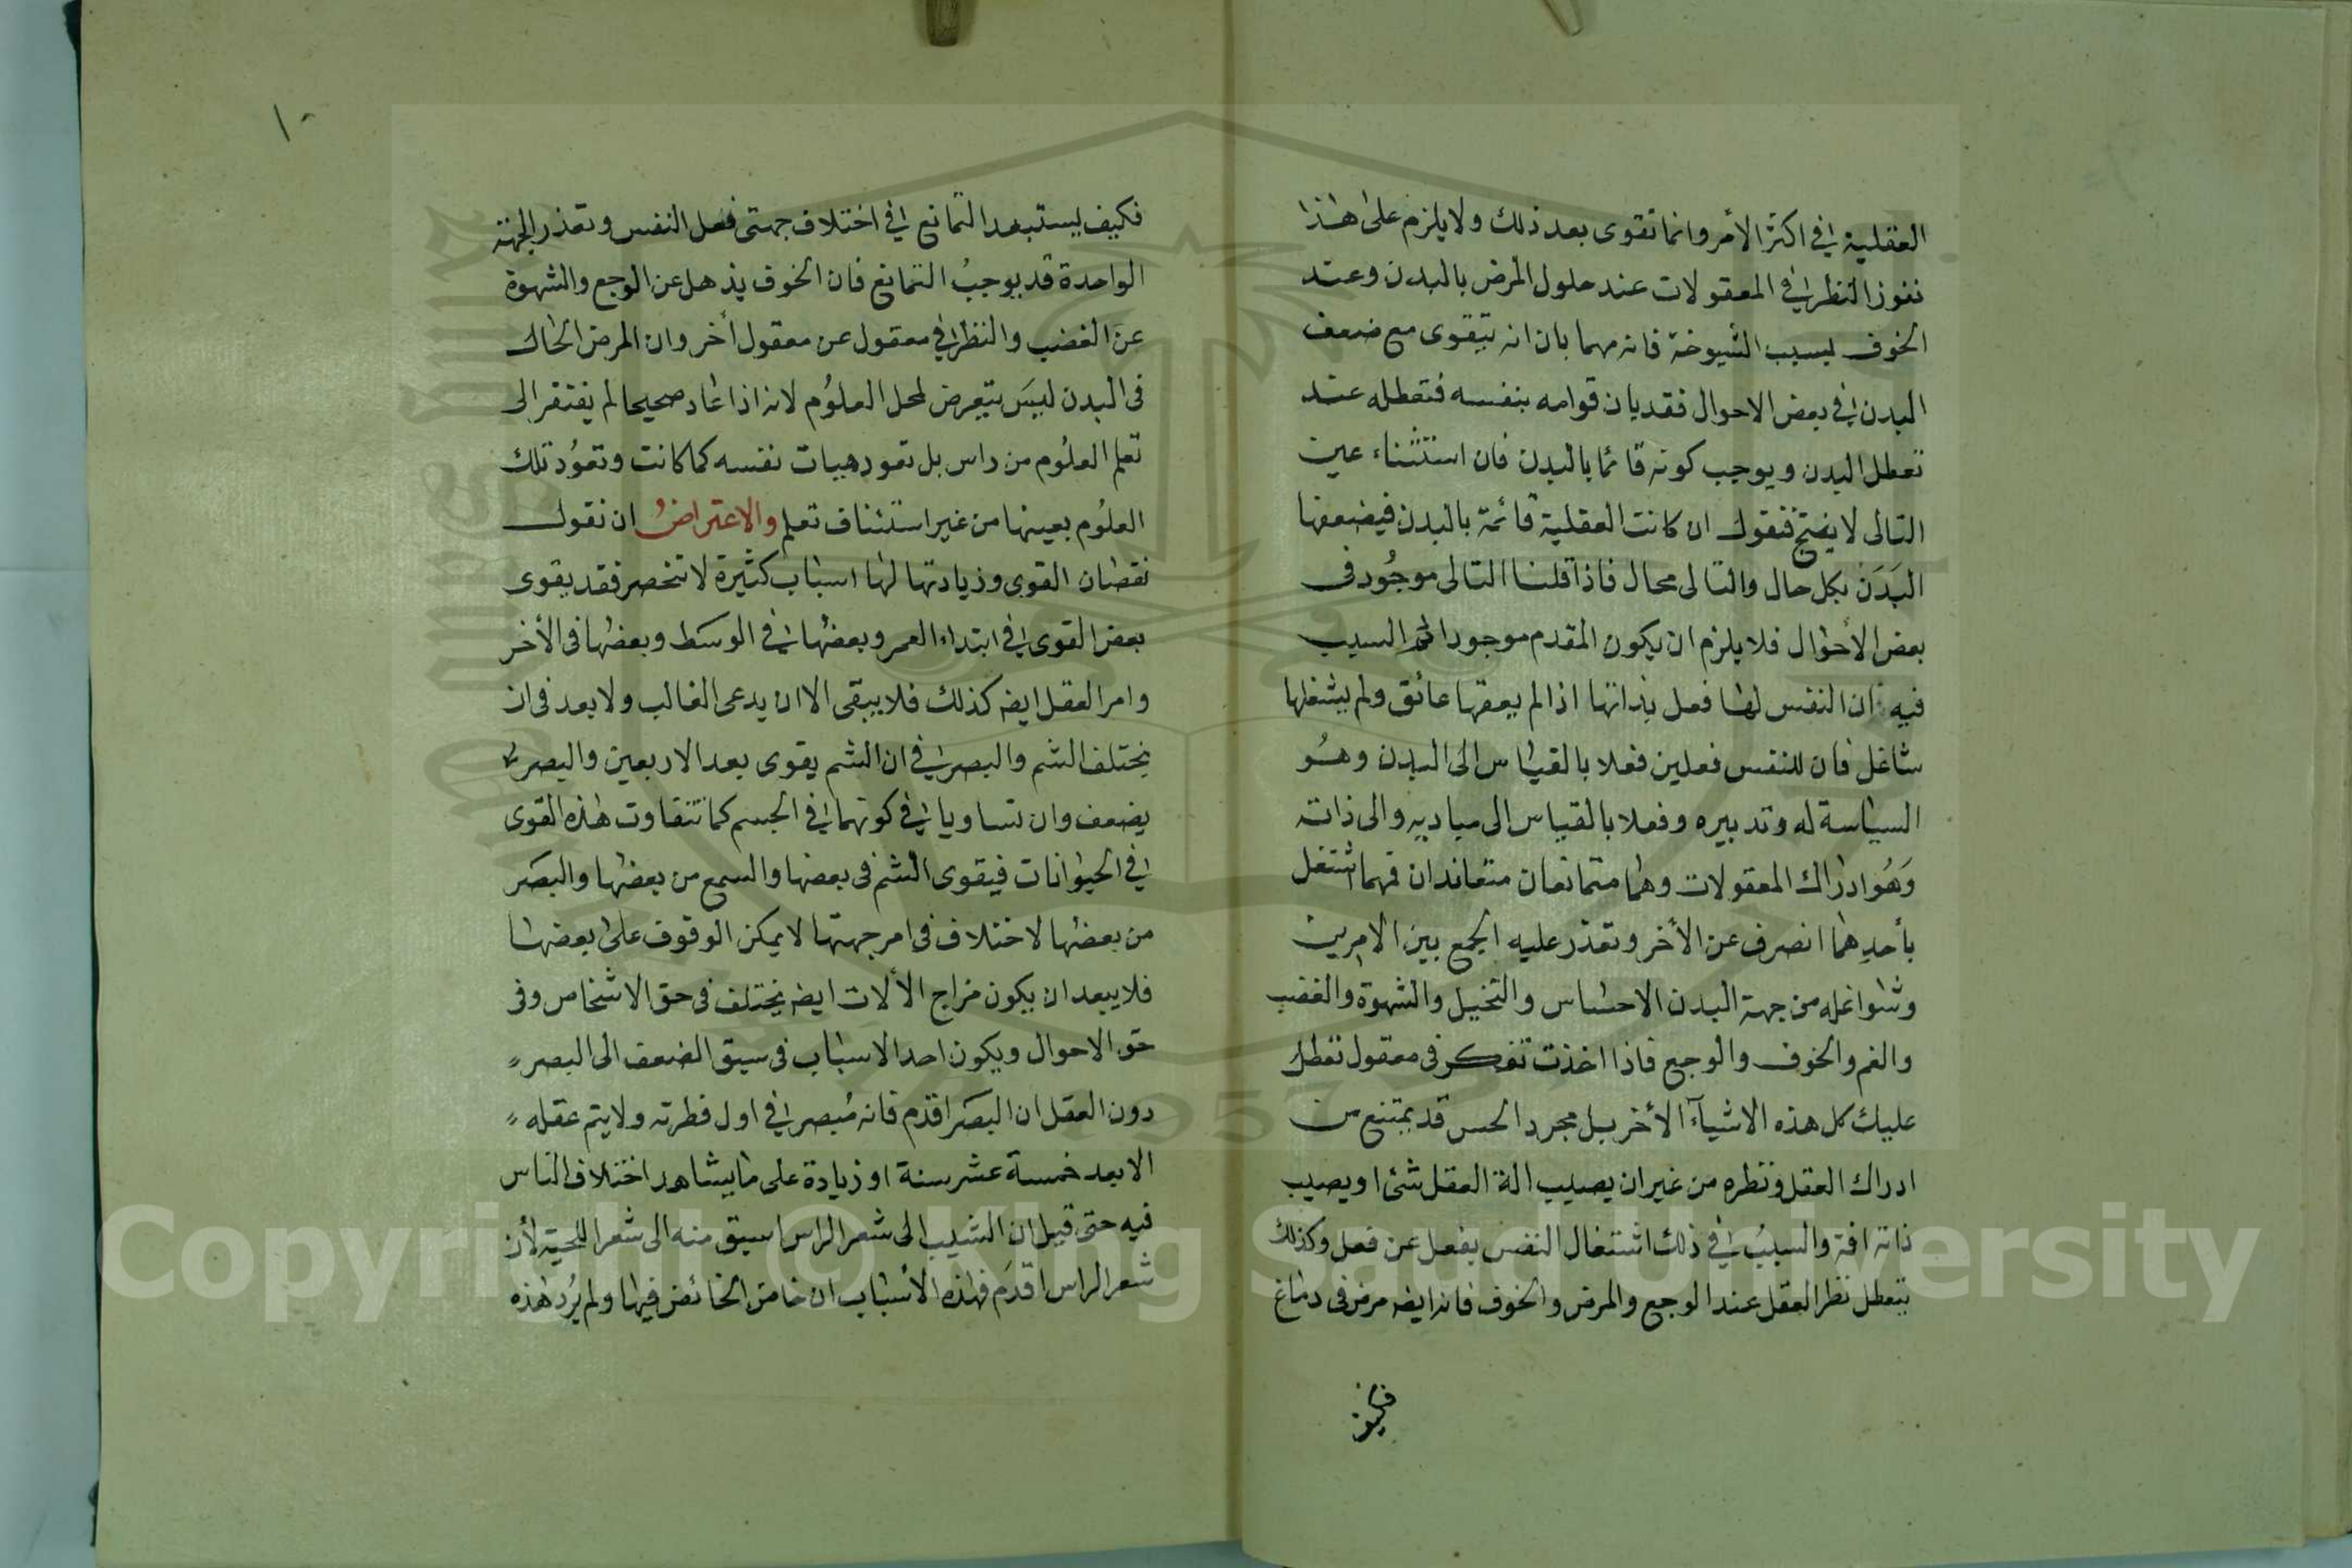 العقلية في اكثر الأمر وانما تقوى بعد ذلك ولا يلزم على هذا
نفوز النظر في المعقولات عند حلول المرض بالبدن وعند
الخوف بسبب الشيوخة فانه مهما بان انه يتقوى مع ضعف
البدن في بعض الاحوال فقد بان قوامه بنفسه فتعطله عند
تعطل البدن ويوجب كونه قائما بالبدن فان استثناء عين
التالى لا ينتج فنقول ان كانت العقلية قائمة بالبدن فيضعفها
البَدَن بكل حال والتالى محال فاذا قلنا التالى موجُود فى
بعض الأحوال فلا يلزم ان يكون المقدم موجودا ثم السبب
فيه ان النفس لها فعل بذاتها اذا لم يعقها عائق ولم يشغلها
شاغل فان للنفس فعلين فعلا بالقياس الى البدن وهُو
السياسة له وتدبيره وفعلا بالقياس الى مباديه والى ذاته
وَهُو ادراك المعقولات وهما متمانعان متعاندان فمهما اشتغل
بأحدِهما انصرف عن الأخر وتعذر عليه الجمع بين الامرين
وشواغله من جهة البدن الاحساس والتخيل والشهوة والغضب
والغم والخوف والوجع فاذا اخذت تفكر فى معقول تعطل
عليك كل هذه الاشيآء الأخر بل مجرد الحس قد يمتنع من
ادراك العقل ونظره من غير ان يصيب الة العقل شئ او يصيب
ذاته افة والسببُ في ذلك اشتغال النفس بفعل عن فعل وكذلك
يتعطل نظر العقل عند الوجع والمرض والخوف فانه ايضه مرض فى دماغ
فكيف
١٠
فكيف يستبعد التمانع في اختلاف جهتى فعل النفس وتعذر الجهة
الواحدة قد يوجبُ التمانع فان الخوف يذهل عن الوجع والشهوة
عن الغضب والنظر في معقول عن معقول أخر وان المرض الحال
فى البدن ليسَ يتعرض لمحل العلُوم لانه اذا عاد صحيحا لم يفتقر الى
تعلم العلُوم من راس بل تعود هيات نفسه كما كانت وتعوُد تلك
العلُوم بعينها من غير استئناف تعلم والاعتراضُ ان نقول
نقصان القوى وزيادتها لها اسباب كثيرة لا تنحصر فقد يقوى
بعض القوى في ابتداء العمر وبعضُها في الوسَط وبعضُها فى الأخر
وامر العقل ايضه كذلك فلا يبقى الا ان يدعى الغالب ولا بعد فى ان
يختلف الشم والبصر في ان الشم يقوى بعد الاربعين والبصر
يضعف وان تساويا في كونهما في الجسم كما تتفاوت هذه القوى
في الحيوانات فيقوى الشم فى بعضها والسمع من بعضها والبصَر
من بعضها لاختلاف فى امزجهتها لا يمكن الوقوف على بعضها
فلا يبعد ان يكون مزاج الألات ايضه يختلف فى حق الاشخاص وفى
حق الاحوال ويكون احد الاسباب فى سبق الضعف الى البصر
دون العقل ان البصَر اقدم فانه مُبصر في اول فطرته ولا يتم عقله
الا بعد خمسة عشر سنة او زيادة على ما يشاهد اختلاف الناس
فيه حتى قيل ان الشيب الى شعر الراس اسبق منه الى شعر اللحية لأن
شعر الراس اقدَم فهذه الأسباب ان خاض الخائض فيها ولم يُرد هذه
Copyright © King Saud University
1957